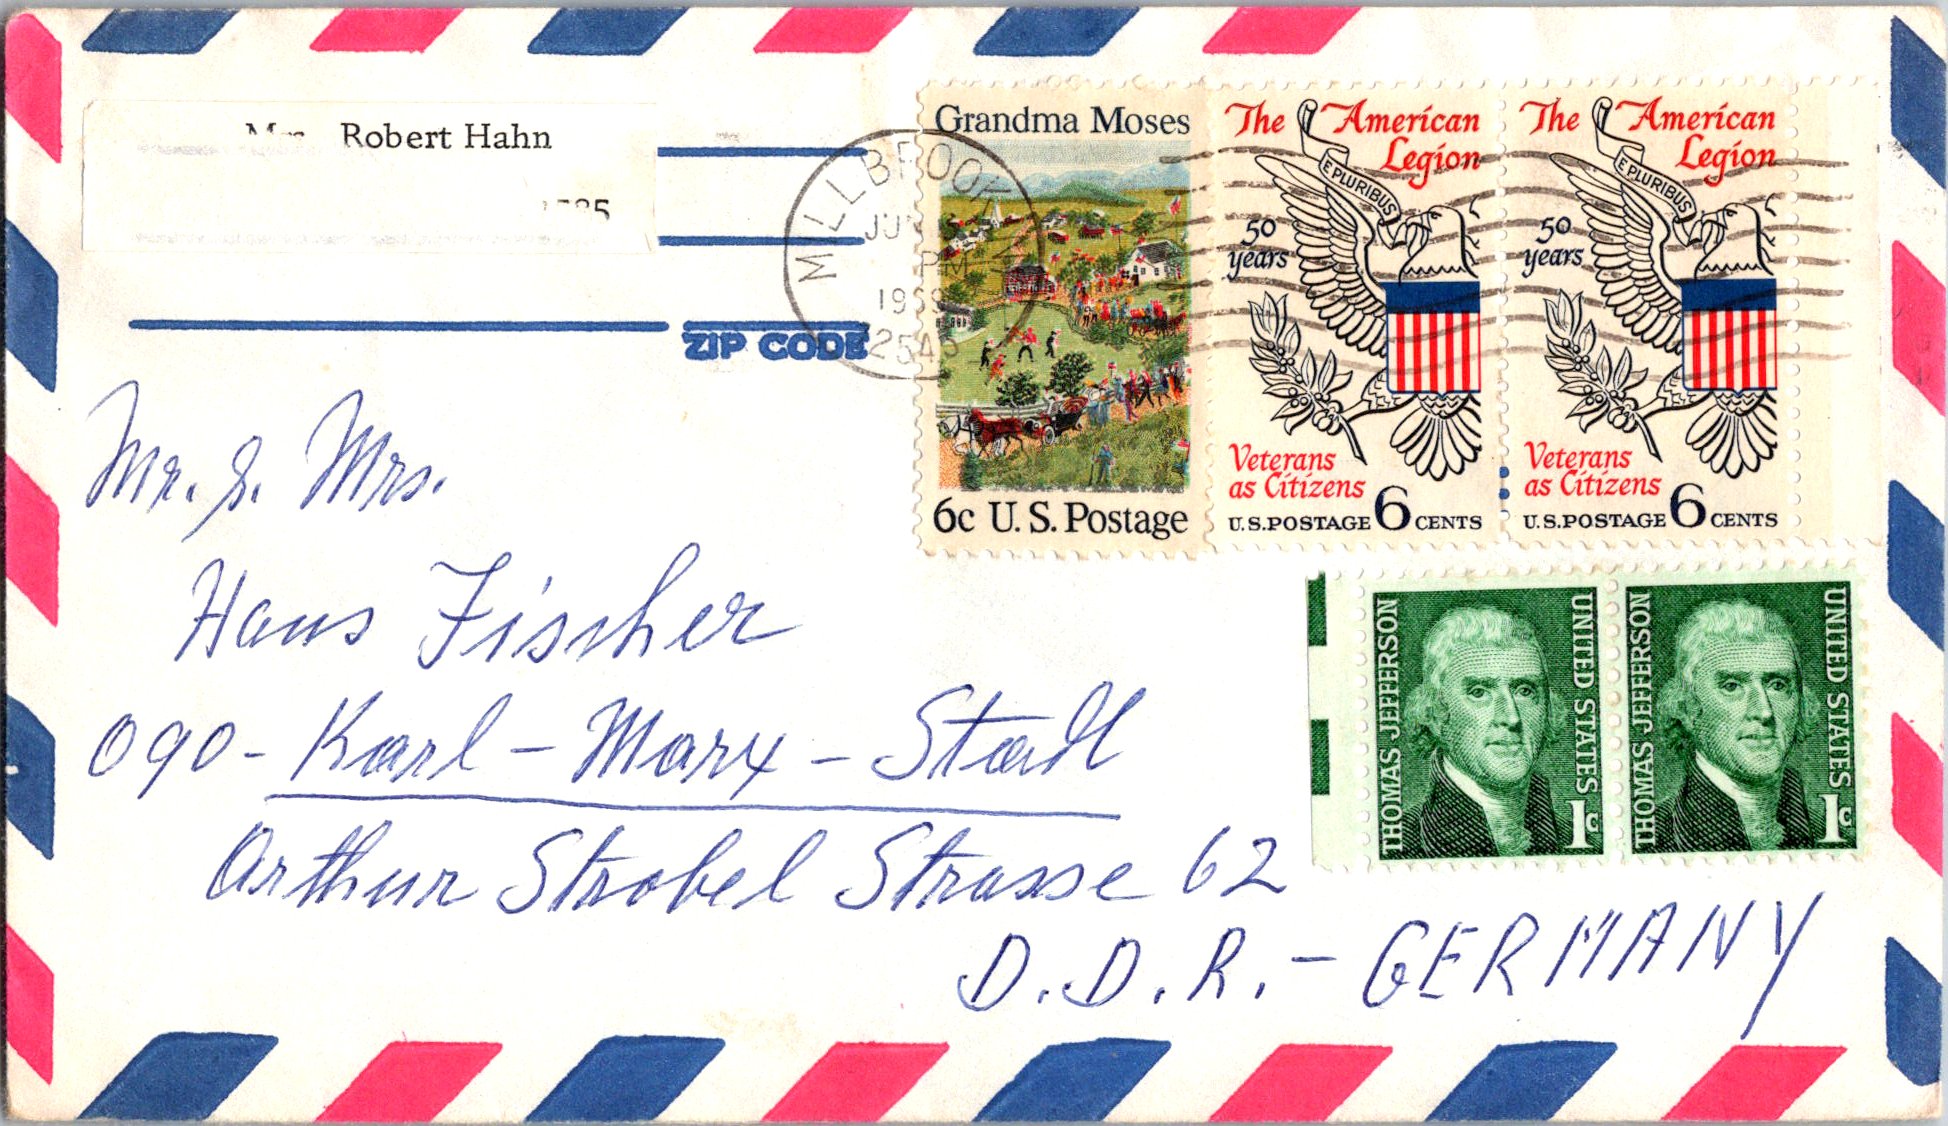 Robert Hahn
ZIP CODE
MILLBROOK
PM
1969
Grandma Moses
6c U.S. Postage
The American
Legion
E PLURIBUS
50
years
Veterans
as Citizens
U.S.POSTAGE 6 CENTS
The American
Legion
E PLURIBUS
50
years
Veterans
as Citizens
U.S.POSTAGE 6 CENTS
THOMAS JEFFERSON
UNITED STATES
1c
THOMAS JEFFERSON
UNITED STATES
1c
Mr. &. Mrs.
Hans Fischer
090 - Karl - Marx - Stadt
Arthur Strobel Strasse 62
D.D.R. - GERMANY